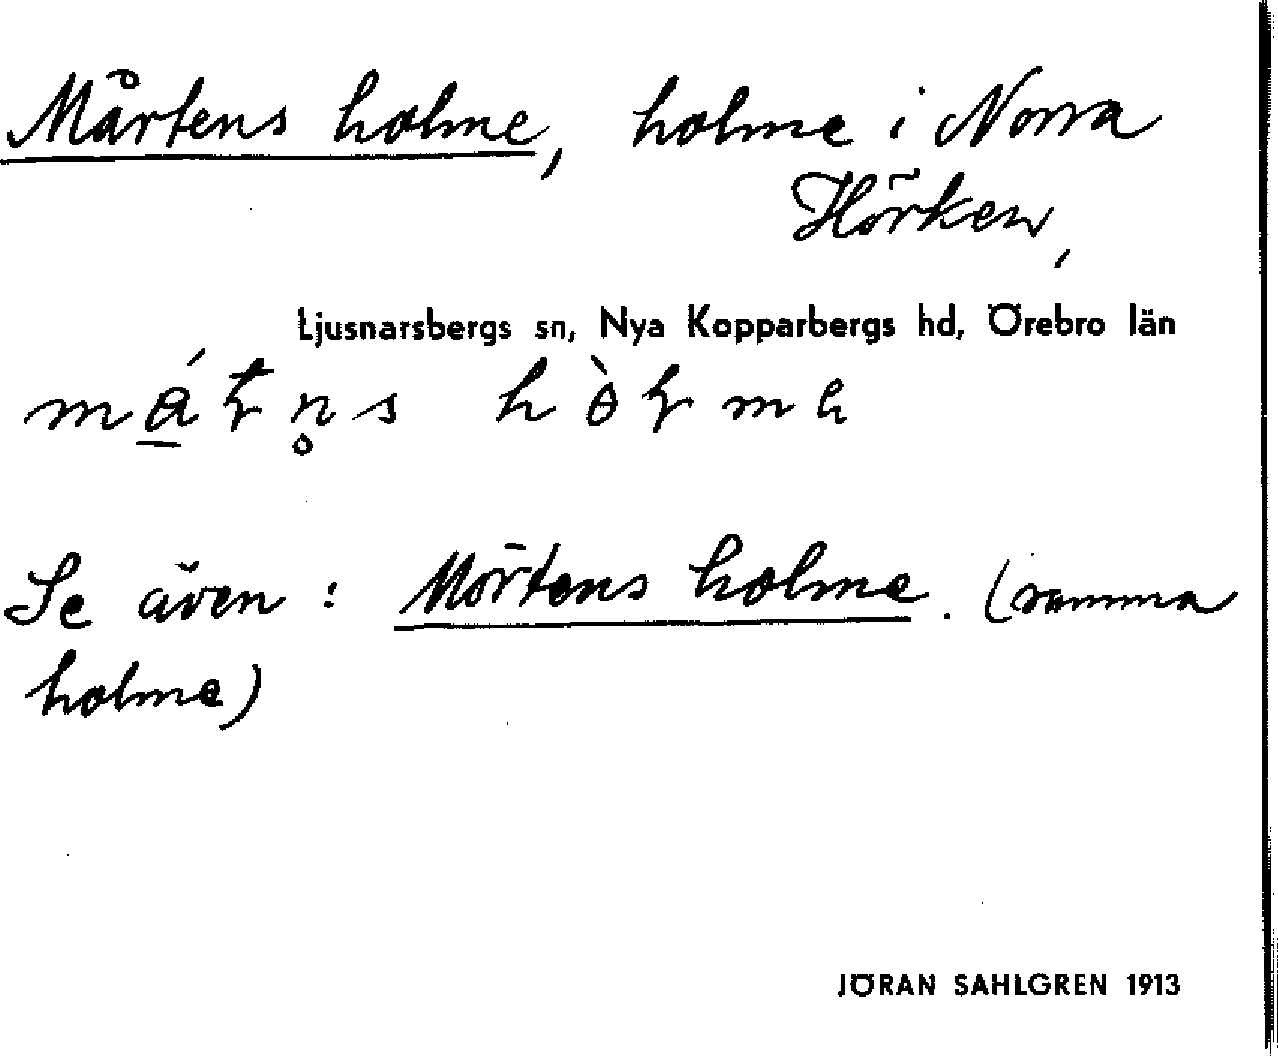 Mårtens holme, holme i Norra
Hörken,
Ljusnarsbergs sn, Nya Kopparbergs hd, Örebro län
Se även: Mörtens holme. (samma
holme)
JÖRAN SAHLGREN 1913